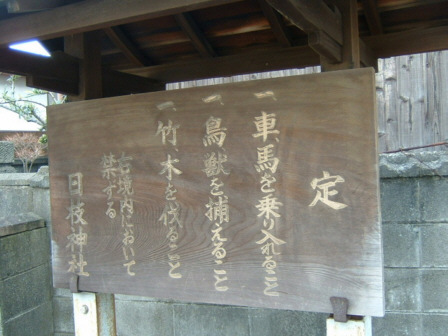 定
一、車、馬を乗り入れること
一、鳥、獣を捕えること
一、竹、木を伐ること
右境内において
禁する
日枝神社